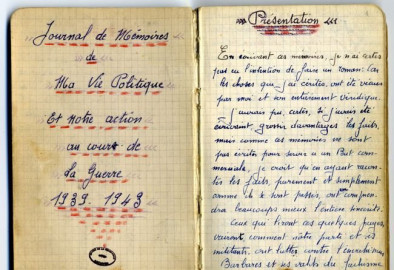 Journal de Mémoires
de
Ma Vie Politique
Et notre action
au cours de
la Guerre
1939. 1943
Présentation
En écrivant ces mémoires, je n'ai certes
pas eu l'intention de faire un roman. Car
les choses que j'ai écrites, ont été vécues
par moi et son entièrement véridique.
J'aurais pu certes, si j'avais été
écrivent grossir davantages les faits,
mais comme ces mémoires ne sont
pas écrites pour servir a un But com-
merciale, je croit qu'en ayant racon-
tés les faits, purement et simplement
comme ils se sont passés,
dra beaucoup mieux l'auteur
Ceux qui liront ces quelques pages,
verront, comment notre parti et ses
militants, ont luttés contre l'envahisseur
Barbares et ses valets du fascisme